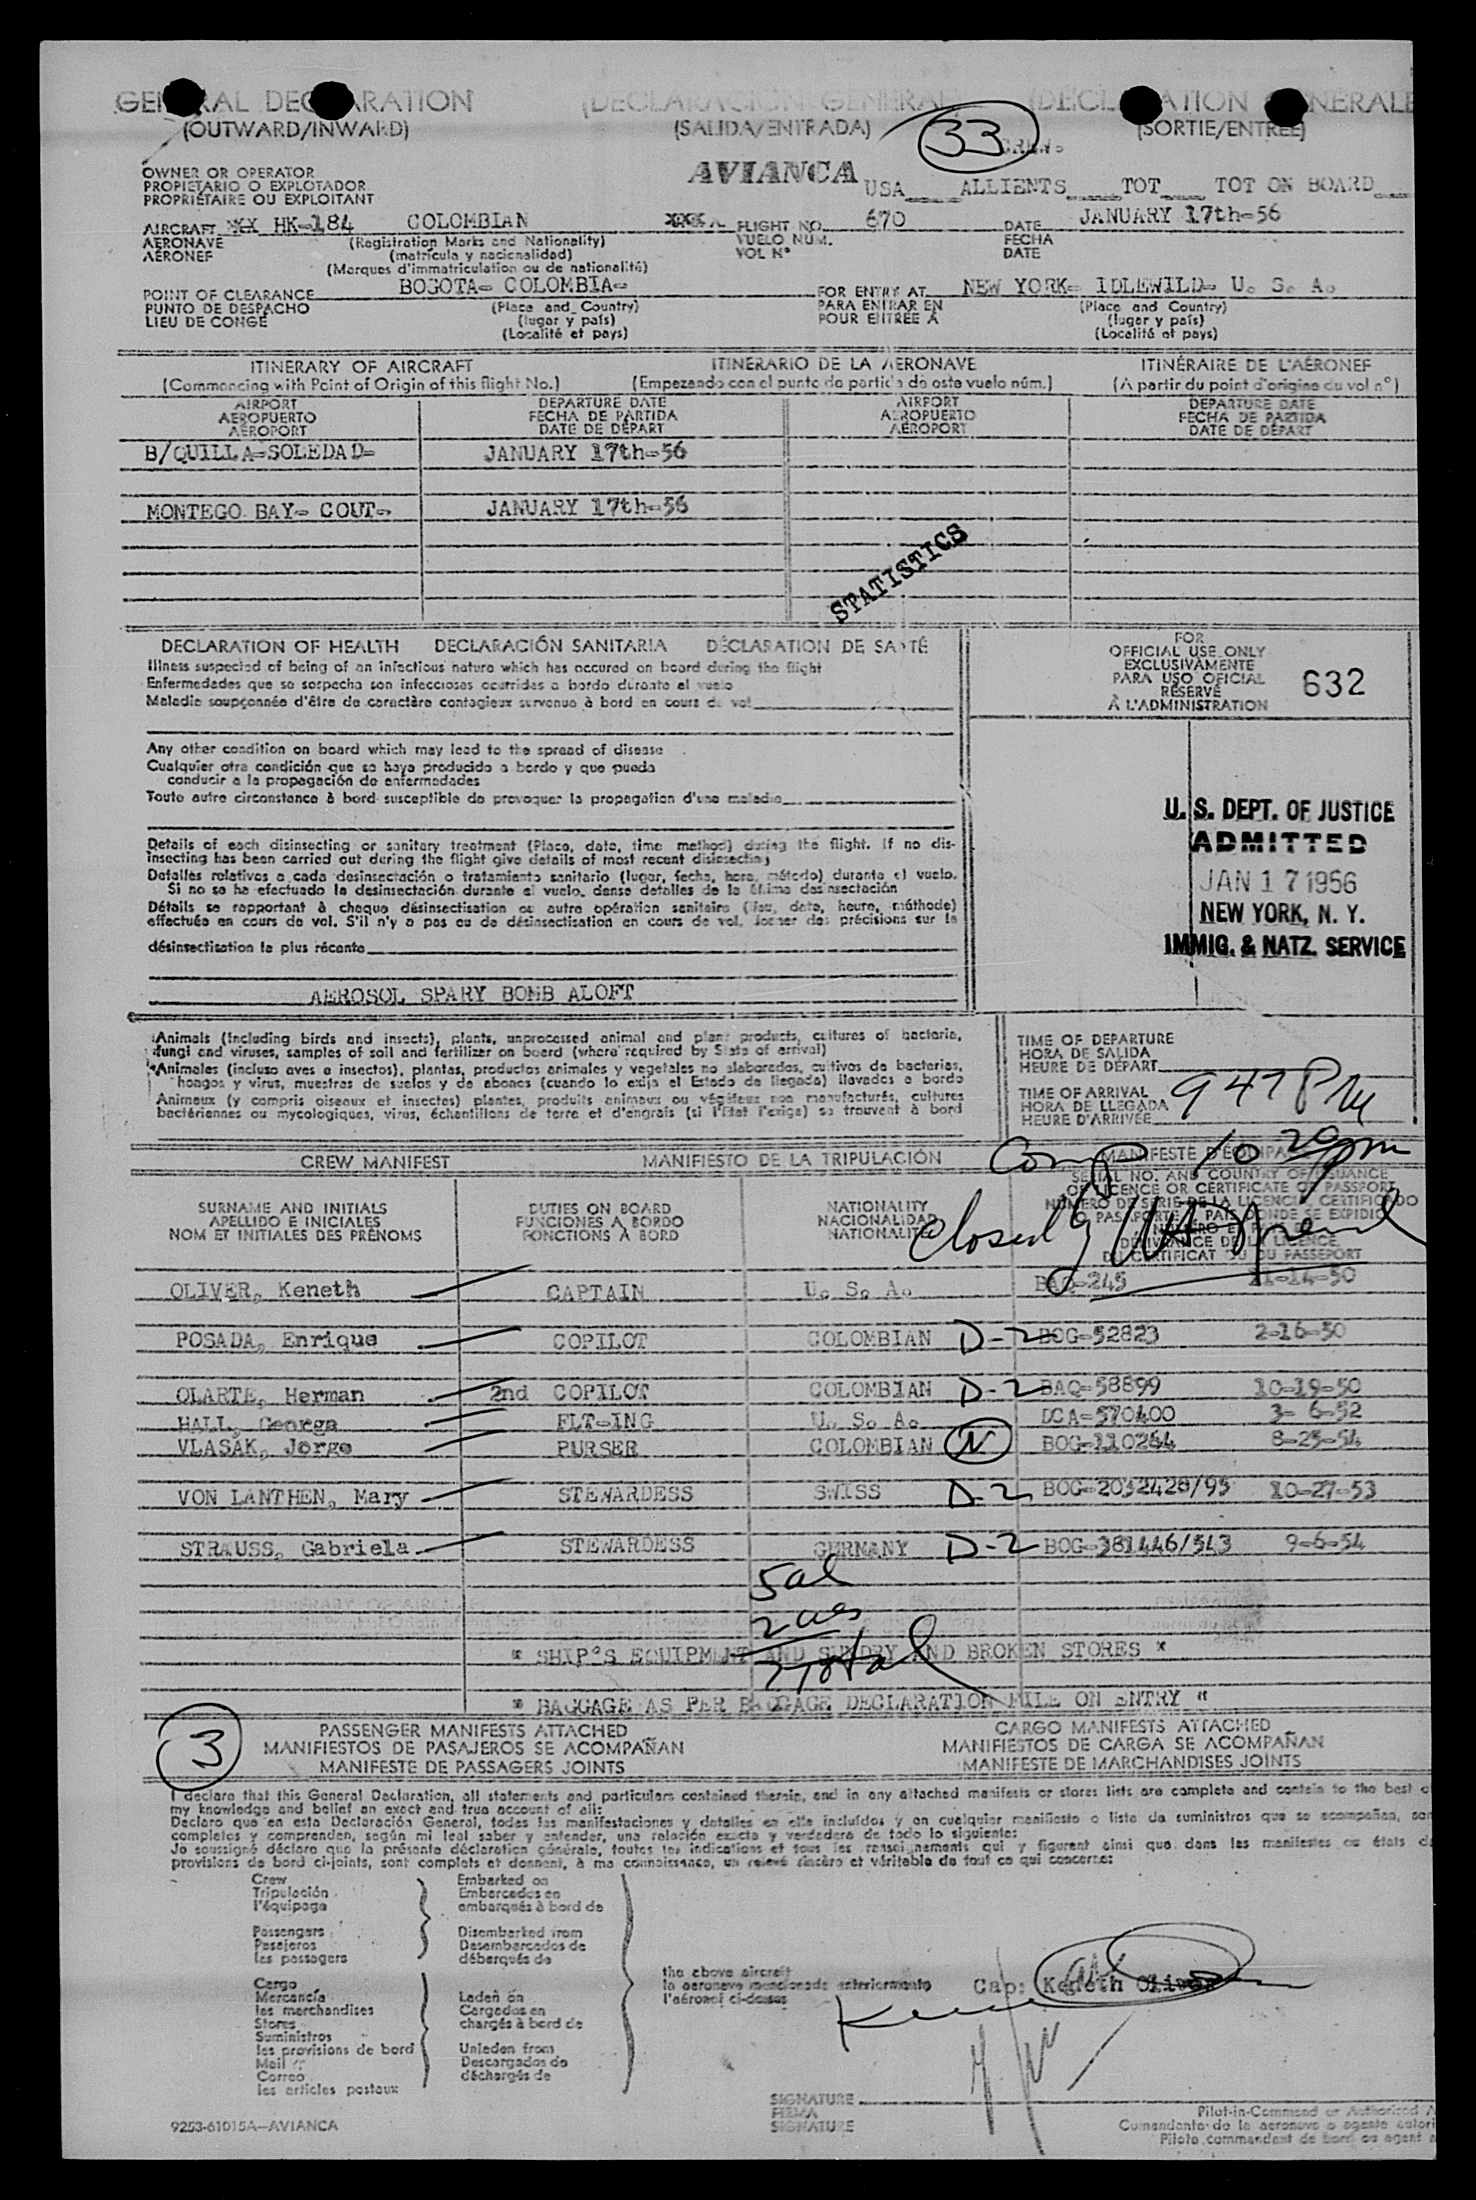 GENERAL DECLARATION (DECLARACION GENERAL) (DECLARATION GENERALE
(OUTWARD/INWARD) (SALIDA/ENTRADA) (SORTIE/ENTRÉE)
33 CREWS
OWNER OR OPERATOR
PROPIETARIO O EXPLOTADOR
PROPRIÉTAIRE OU EXPLOITANT
AVIANCA USA ALLIENTS TOT TOT ON BOARD
AIRCRAFT HK-184 COLOMBIAN FLIGHT NO. 670 DATE JANUARY 17th-56
AERONAVE (Registration Marks and Nationality) VUELO NUM. FECHA
AÉRONEF (matrícula y nacionalidad) VOL Nº DATE
(Marques d'immatriculation ou de nationalité)
POINT OF CLEARANCE BOGOTA- COLOMBIA- FOR ENTRY AT NEW YORK- IDLEWILD- U. S. A.
PUNTO DE DESPACHO (Place and Country) PARA ENTRAR EN (Place and Country)
LIEU DE CONGÉ (lugar y país) POUR ENTREE À (lugar y país)
(Localité et pays) (Localité et pays)
ITINERARY OF AIRCRAFT ITINERARIO DE LA AERONAVE ITINÉRAIRE DE L'AÉRONEF
(Commencing with Point of Origin of this flight No.) (Empezando con el punto de partida de este vuelo núm.) (A partir du point d'origine du vol nº)
AIRPORT DEPARTURE DATE AIRPORT DEPARTURE DATE
AEROPUERTO FECHA DE PARTIDA AEROPUERTO FECHA DE PARTIDA
AÉROPORT DATE DE DÉPART AÉROPORT DATE DE DÉPART
B/QUILLA-SOLEDAD- JANUARY 17th-56
MONTEGO BAY- COUT- JANUARY 17th-56
STATISTICS
DECLARATION OF HEALTH DECLARACIÓN SANITARIA DÉCLARATION DE SANTÉ
Illness suspected of being of an infectious nature which has occured on board during the flight
Enfermedades que se sospecha son infecciosas ocurridas a bordo durante el vuelo
Maladie soupçonnée d'être de caractère contagieux survenue à bord en cours de vol
FOR
OFFICIAL USE ONLY
EXCLUSIVAMENTE
PARA USO OFICIAL
RÉSERVÉ
À L'ADMINISTRATION
632
Any other condition on board which may lead to the spread of disease
Cualquier otra condición que se haya producido a bordo y que pueda
conducir a la propagación de enfermedades
Toute autre circonstance à bord susceptible de provoquer la propagation d'une maladie
Details of each disinsecting or sanitary treatment (Place, date, time method) during the flight. If no dis-
insecting has been carried out during the flight give details of most recent disinsecting
Detalles relativos a cada desinsectación o tratamiento sanitario (lugar, fecha, hora, método) durante el vuelo.
Si no se ha efectuado la desinsectación durante el vuelo, dense detalles de la última desinsectación
Détails se rapportant à chaque désinsectisation ou autre opération sanitaire (lieu, date, heure, méthode)
effectuée en cours de vol. S'il n'y a pas eu de désinsectisation en cours de vol, donner des précisions sur la
désinsectisation la plus récente
AEROSOL SPARY BOMB ALOFT
U. S. DEPT. OF JUSTICE
ADMITTED
JAN 17 1956
NEW YORK, N. Y.
IMMIG. & NATZ. SERVICE
Animals (including birds and insects), plants, unprocessed animal and plant products, cultures of bacteria,
fungi and viruses, samples of soil and fertilizer on board (where required by State of arrival)
Animales (incluso aves e insectos), plantas, productos animales y vegetales no elaborados, cultivos de bacterias,
hongos y virus, muestras de suelos y de abonos (cuando lo exija el Estado de llegada) llevados a bordo
Animaux (y compris oiseaux et insectes) plantes, produits animaux ou végétaux non manufacturés, cultures
bactériennes ou mycologiques, virus, échantillons de terre et d'engrais (si l'État l'exige) se trouvant à bord
TIME OF DEPARTURE
HORA DE SALIDA
HEURE DE DÉPART
TIME OF ARRIVAL
HORA DE LLEGADA
HEURE D'ARRIVÉE
947 PM
CREW MANIFEST MANIFIESTO DE LA TRIPULACIÓN MANIFESTE D'ÉQUIPAGE
Comp 10 20 pm
Closed by
SURNAME AND INITIALS DUTIES ON BOARD NATIONALITY
APELLIDO E INICIALES FUNCIONES A BORDO NACIONALIDAD
NOM ET INITIALES DES PRÉNOMS FONCTIONS À BORD NATIONALITÉ
SERIAL NO. AND COUNTRY OF ISSUANCE
OF LICENCE OR CERTIFICATE OR PASSPORT
NÚMERO DE SERIE DE LA LICENCIA, CERTIFICADO
O PASAPORTE Y PAIS DONDE SE EXPIDIO
NUMÉRO ET PAYS DE
DÉLIVRANCE DE LA LICENCE
DU CERTIFICAT OU DU PASSEPORT
OLIVER, Keneth CAPTAIN U. S. A. BAQ-245 11-14-50
POSADA, Enrique COPILOT COLOMBIAN D-2 BOG-52823 2-16-50
OLARTE, Herman 2nd COPILOT COLOMBIAN D-2 BAQ-58899 10-19-50
HALL, George FLT-ING U. S. A. DCA-570400 3- 6-52
VLASAK, Jorge PURSER COLOMBIAN N BOG-110264 8-25-54
VON LANTHEN, Mary STEWARDESS SWISS D-2 BOG-2032428/95 10-27-53
STRAUSS, Gabriela STEWARDESS GERMANY D-2 BOG-381446/543 9-6-54
5 al
2 ucs
7 Total
* SHIP'S EQUIPMENT AND SUNDRY AND BROKEN STORES *
* BAGGAGE AS PER BAGGAGE DECLARATION FILE ON ENTRY "
3
PASSENGER MANIFESTS ATTACHED CARGO MANIFESTS ATTACHED
MANIFIESTOS DE PASAJEROS SE ACOMPAÑAN MANIFIESTOS DE CARGA SE ACOMPAÑAN
MANIFESTE DE PASSAGERS JOINTS MANIFESTE DE MARCHANDISES JOINTS
I declare that this General Declaration, all statements and particulars contained therein, and in any attached manifests or stores lists are complete and contain to the best o
my knowledge and belief an exact and true account of all:
Declaro que en esta Declaración General, todas las manifestaciones y detalles en ella incluídos y en cualquier manifiesto o lista de suministros que se acompañan, son
completos y comprenden, según mi leal saber y entender, una relación exacta y verdadera de todo lo siguiente:
Je soussigné déclare que la présente déclaration générale, toutes les indications et tous les renseignements qui y figurent ainsi que dans les manifestes ou états de
provisions de bord ci-joints, sont complets et donnent, à ma connaissance, un relevé sincère et véritable de tout ce qui concerne:
Crew Embarked on
Tripulación Embarcados en
l'équipage embarqués à bord de
Passengers Disembarked from
Pasajeros Desembarcados de
les passagers débarqués de
Cargo
Mercancía Laden on
les marchandises Cargados en
Stores chargés à bord de
Suministros
les provisions de bord Unladen from
Mail Descargados de
Correo déchargés de
les articles postaux
the above aircraft
la aeronave mencionada anteriormente
l'aéronef ci-dessus
Cap: Keneth Oliver
SIGNATURE
FIRMA
SIGNATURE
Pilot-in-Command or Authorized A
Comandante de la aeronave o agente autori
Pilote commandant de bord ou agent a
9253-61015A—AVIANCA